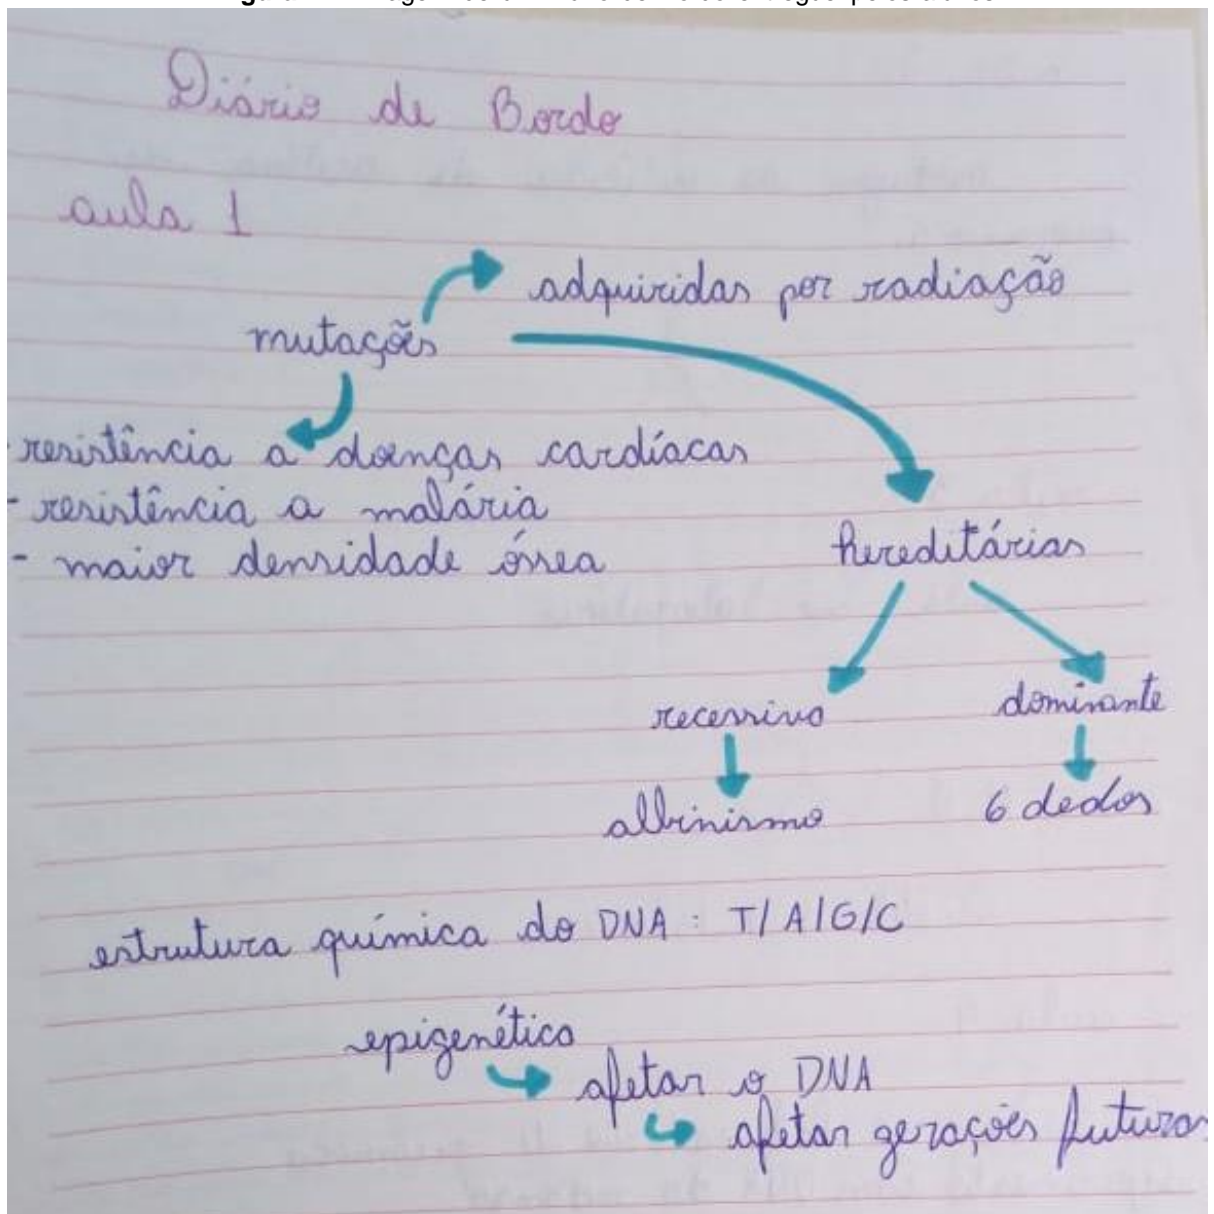 Diário de Bordo
aula 1
adquiridas por radiação
mutações
- resistência a doenças cardíacas
- resistência a malária
- maior densidade óssea
hereditárias
recessivo
dominante
albinismo
6 dedos
estrutura química do DNA : T/A/G/C
epigenético
afetar o DNA
afetar gerações futuras